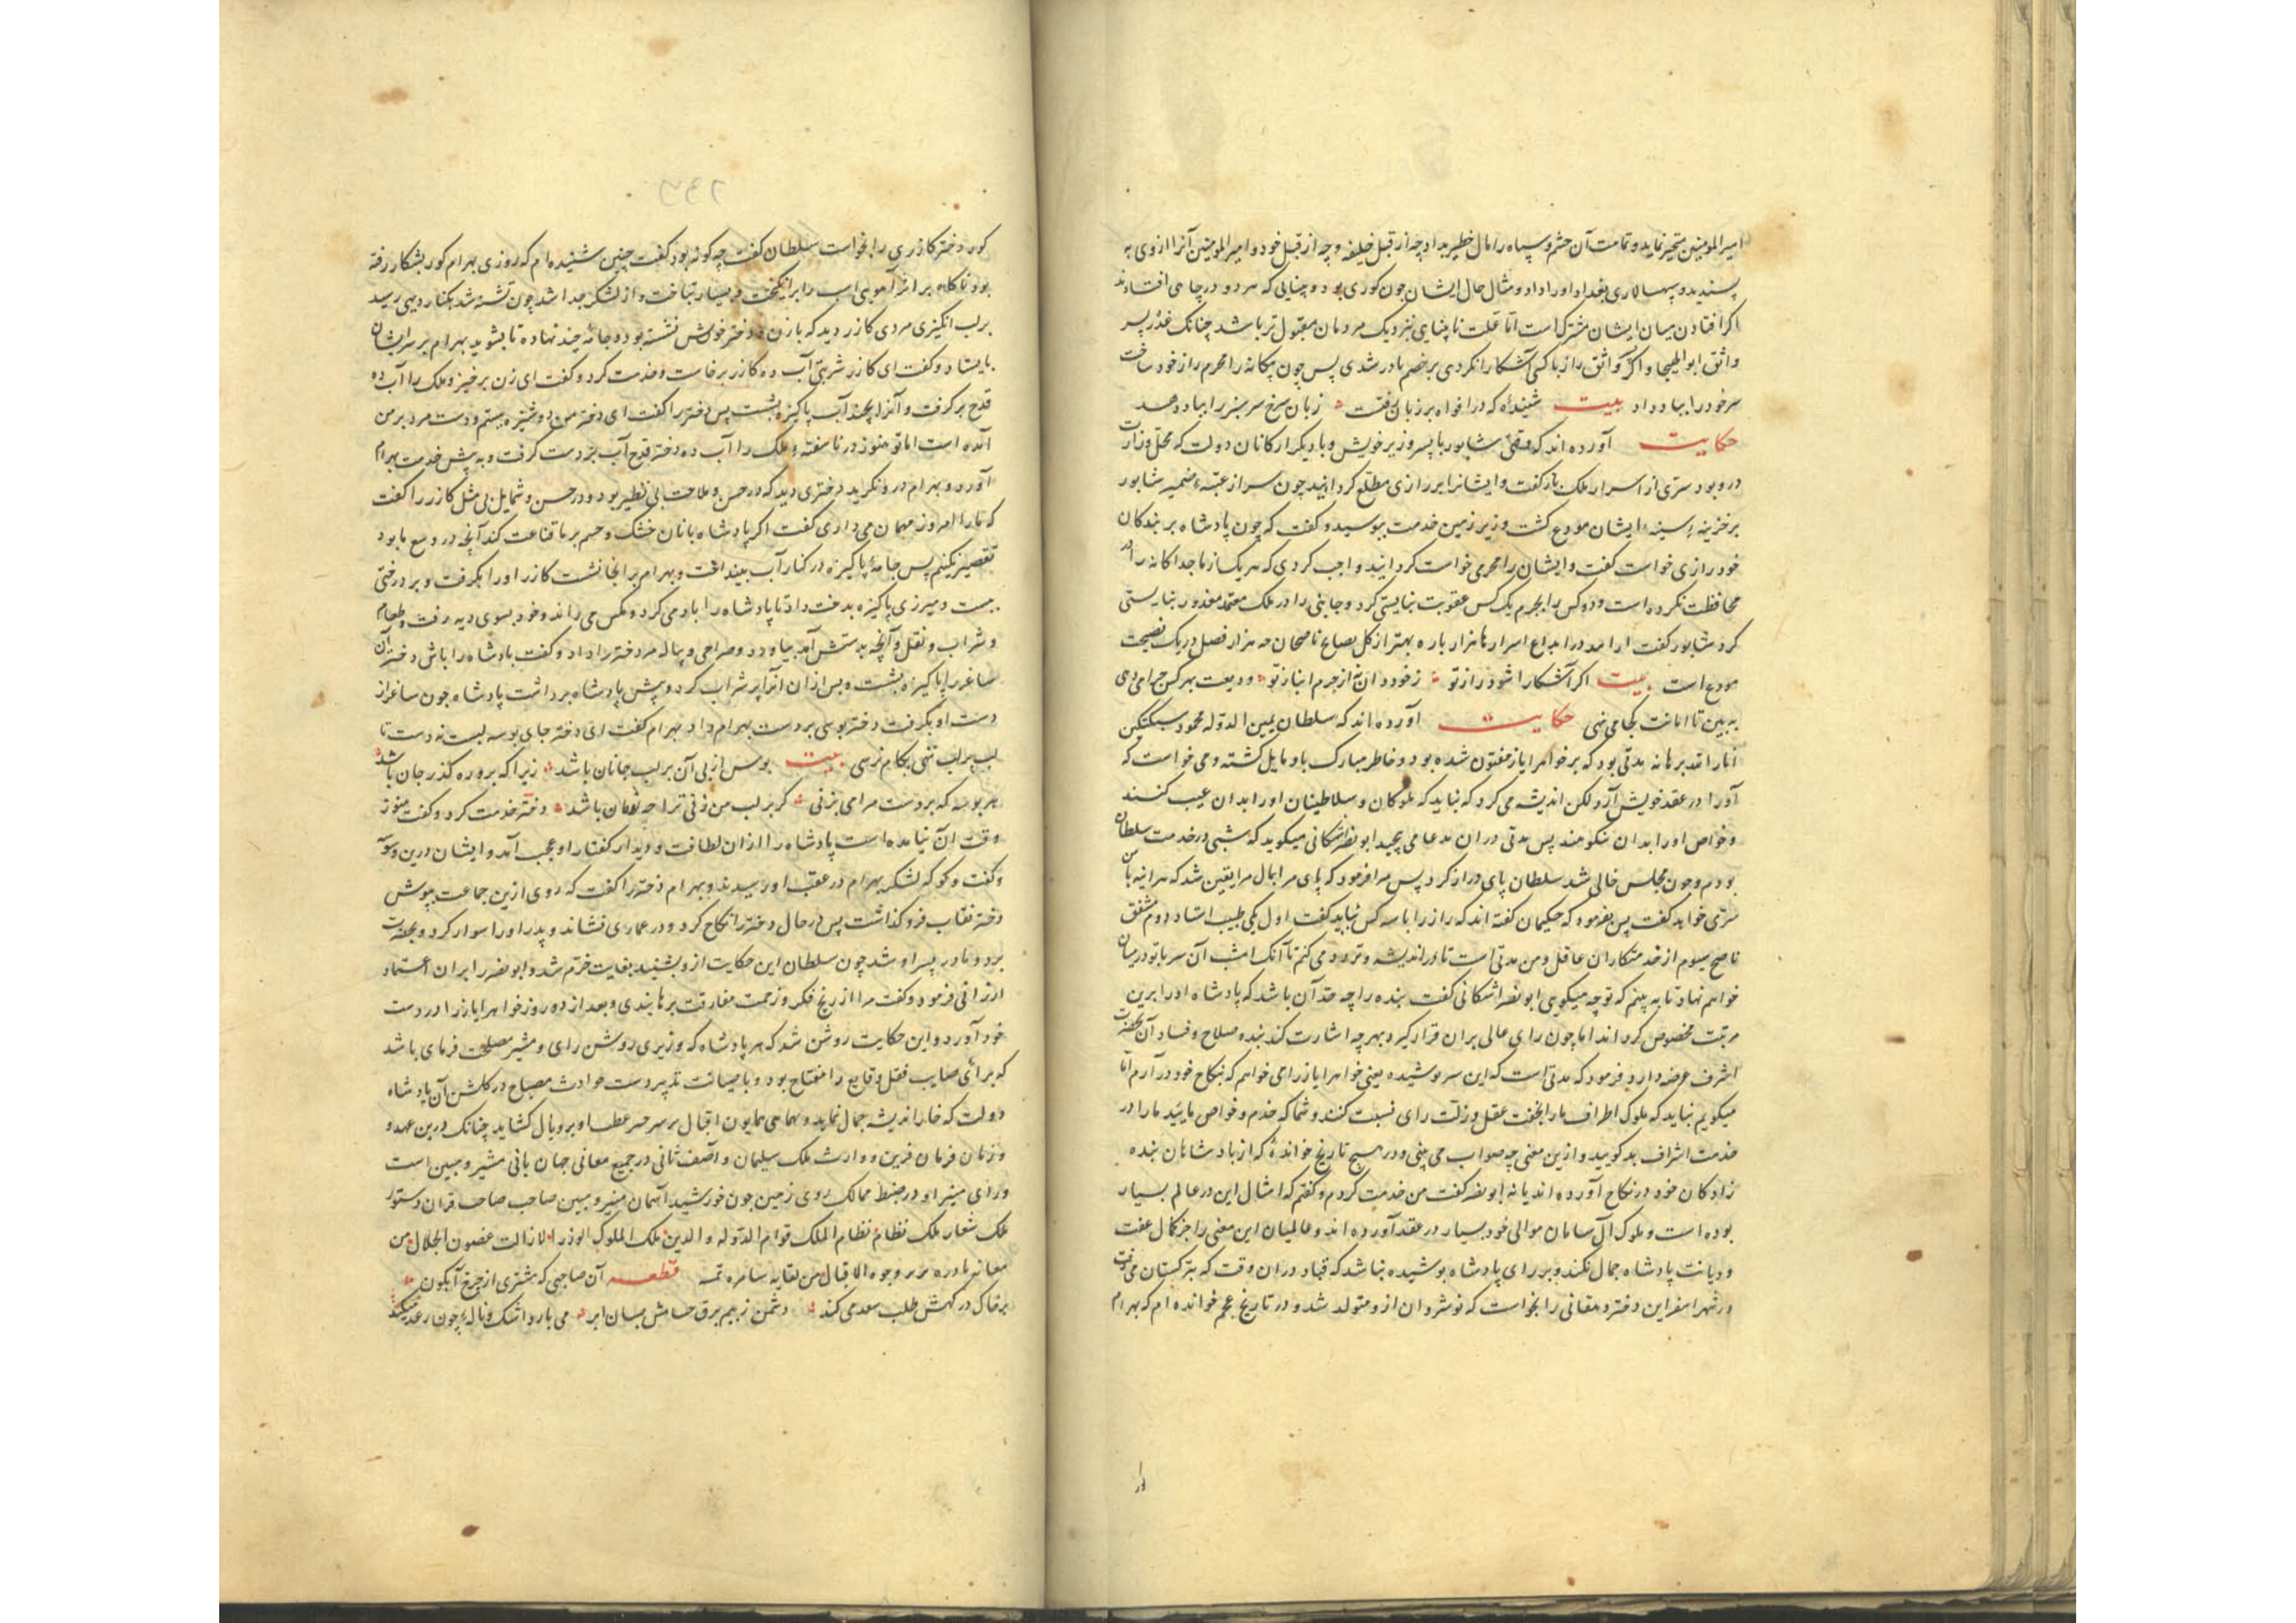 امیرالمومنین متحیر نماید و تمامت آن حشم و سپاه را مال خطیر بداد چه از قبل خلیفه و چه از قبل خود و امیرالمومنین آنرا از وی به
پسندید و سپهسالاری بغداد او را داد و مثال حال ایشان چون کوری بود و بینایی که هر دو در چاهی افتادند
اکر افتادن میان ایشان مشترک است اما علت نابینایی نزدیک مردمان مقبول تر باشد چنانک عذر پسر
واثق ابوالهیجا و اکر واثق راز با کسی آشکارا نکردی بر خصم قادر شدی پس چون بیکانه را محرم راز خود ساخت
سر خود را بباد داد بیت شنیدهٔ که در افواه بر زبان رفتست زبان سرخ سر سبز را بباد دهد
حکایت آورده اند که وقتی شاپور با پسر وزیر خویش و با دیکر ارکانان دولت که محل وزارت
درو بود سرّی از اسرار ملک باز کفت و ایشانرا بر رازی مطلع کردانید چون سر از عتبهٔ ضمیر شاپور
بر خزینهٔ سینهٔ ایشان مودع کشت وزیر زمین خدمت ببوسید و کفت که چون پادشاه بر بندکان
خود رازی خواست کفت و ایشان را محرمی خواست کردانید واجب کردی که هر یک از ما جداکانه را
محافظت نکرده است و دو کس را بجرم یک کس عقوبت نبایستی کرد و جانبی را در ملک معتمد معذور نبایستی
کرد شاپور کفت اسرار هزار باره بهتر از کل نصایح ناصحان چه هزار فصل در یک نصیحت
مودع است بیت اکر آشکارا شود راز تو ز خود دان نه از جرم انباز تو ودیعت بهر کس چرا می دهی
به بین تا امانت کجا می نهی حکایت آورده اند که سلطان یمین الدوله محمود سبکتکین
انار الله برهانه مدتی بود که بر خواهر ایاز مفتون شده بود و خاطر مبارک باو مایل کشته و می خواست که
او را در عقد خویش آرد لکن اندیشه می کرد که نباید که ملوکان و سلاطینان او را بدان عیب کنند
و خواص او را بدان نکوهند پس مدتی دران مدعا می پیچید ابو نصر اشکانی میکوید که شبی در خدمت سلطان
بودم و چون مجلس خالی شد سلطان پای دراز کرد پس مرا فرمود که پای مرا بمال مرا یقین شد که هر آینه با من
سرّی خواهد کفت پس بفرمود که حکیمان کفته اند که راز را با سه کس بباید کفت اول یکی طبیب استاد دوم مشفق
ناصح سیوم از خدمتکاران عاقل و من مدتی است تا در اندیشه و تردد می کنم تا آنک امشب آن سر با تو در میان
خواهم نهاد تا به بینم که تو چه میکویی ابو نصر اشکانی کفت بنده را چه حد آن باشد که پادشاه او را برین
مرتبت مخصوص کرداند اما چون رای عالی بران قرار کیرد بهر چه اشارت کند بنده صلاح و فساد آن بحضرت
اشرف عرضه دارد فرمود که مدتی است که این سر پوشیده یعنی خواهر ایاز را می خواهم که نکاح خود در آرم اما
میکویم نباید که ملوک اطراف ما را بخفت عقل و زلّت رای نسبت کنند و شما که خدم و خواص مایید ما را در
خدمت اشراف بد کویید و ازین معنی چه صواب می بینی و در هیچ تاریخ خواندهٔ که از پادشاهان بنده
زادکان خود در نکاح آورده اند یا نه ابو نصر کفت من خدمت کردم و کفتم که امثال این در عالم بسیار
بوده است و ملوک آل سامان موالی خود بسیار در عقد آورده اند و عالمیان این معنی را جز کمال عفت
و دیانت پادشاه حمل نکنند و بر رای پادشاه پوشیده نباشد که قباد دران وقت که بترکستان می رفت
در شهر اسفراین دختر دهقانی را بخواست که نوشروان ازو متولد شد و در تاریخ عجم خوانده ام که بهرام
کور دختر کازری را بخواست سلطان کفت چه کونه بود کفت چنین شنیده ام که روزی بهرام کور بشکار رفته
بود ناکاه بر اثر آهویی اسب را برانکیخت و بسیار بتاخت و از لشکر جدا شد چون تشنه شد بکنار دیهی رسید
بر لب آبکیری مردی کازر دید که با زن و دختر خویش نشسته بود و جامهٔ چند نهاده تا بشوید بهرام بر سر ایشان
بایستاد و کفت ای کازر شربتی آب ده کازر برخاست و خدمت کرد و کفت ای زن برخیز و ملک را آب ده
قدح برکرفت و آنرا بچند آب پاکیزه بشست پس دختر را کفت ای دختر من دوشیزه نیستم و دست مرد بر من
آمده است اما تو هنوز در ناسفتهٔ ملک را آب ده دختر قدح آب بر دست کرفت و به پیش خدمت بهرام
آورد و بهرام درو نکرید دختری دید که در حسن و ملاحت بی نظیر بود و در حسن و شمایل بی مثل کازر را کفت
که ما را امروز مهمان می داری کفت اکر پادشاه بانان خشک و خسم بر ما قناعت کند آنچه در وسع ما بود
تقصیر نکنیم پس جامهٔ پاکیزه در کنار آب بینداخت و بهرام بر انجا نشست کازر او را بکرفت و بر درختی
ببست و میزری پاکیزه بدختر داد تا پادشاه را باد می کرد و مکس می راند و خود بسوی دیه رفت و طعام
و شراب و نقل و آنچه بدستش آمد بیاورد و صراحی و پیاله مر دختر را داد و کفت پادشاه را باش دختر آن
ساغر را پاکیزه بشست و پس ازان انرا پر شراب کرد و پیش پادشاه برداشت پادشاه چون ساغر از
دست او بکرفت دختر بوسی بر دست بهرام داد بهرام کفت ای دختر جای بوسه لبست نه دست تا
لب بر لب ننهی بکام نرسی بیت بوس از پی آن بر لب جانان باشد زیرا که برو ره کذر جان باشد
هر بوسه که بر دست مرا می بزنی کر بر لب من زنی ترا چه نقصان باشد دختر خدمت کرد و کفت هنوز
وقت آن نیامده است پادشاه را ازان لطافت و دیدار کفتار او عجب آمد و ایشان درین
و کفت و کو که لشکر بهرام در عقب او رسیدند و بهرام دختر را کفت که روی ازین جماعت بپوش
دختر نقاب فرو کذاشت پس در حال دختر را نکاح کرد و در عماری نشاند و پدر او را سوار کرد و بحضرت
برد و مادر پسر او شد چون سلطان این حکایت ازو بشنید بغایت خرّم شد و ابو نصر را بران اعتماد
ارزانی فرمود و کفت مرا از رنج فکر و زحمت مفارقت برهانیدی و بعد از دو روز خواهر ایاز را در دست
خود آورد و این حکایت روشن شد که هر پادشاه که وزیری روشن رای و مشیر مصلحت فرمای باشد
که برائی صایب قفل وقایع را مفتاح بود و با صیانت تدبیر دست حوادث مصباح در کلشن آن پادشاه
دولت که خار اندیشه جمال نماید و همای همایون اقبال بر سر او پر و بال کشاید چنانک درین عهد و
و زمان فرمان قرین و وارث ملک سلیمان و آصف ثانی در جمیع معانی جهان بانی مشیر و مبین است
و رای منیر او در ضبط ممالک روی زمین چون خورشید آسمان منیر و مبین صاحب صاحب قران دستور
ملک شعار ملک نظام نظام الملک قوام الدوله و الدین ملک الملوک الوزرا لا زالت غصون الجلال من
وجوه الاقبال من لقایه قطعه آن صاحبی که مشتری از چرخ آبکون
بر خاک درکهش طلب سعد می کند دشمن ز بیم برق حسامش بسان ابر می بارد اشک و ناله چون رعد میکند